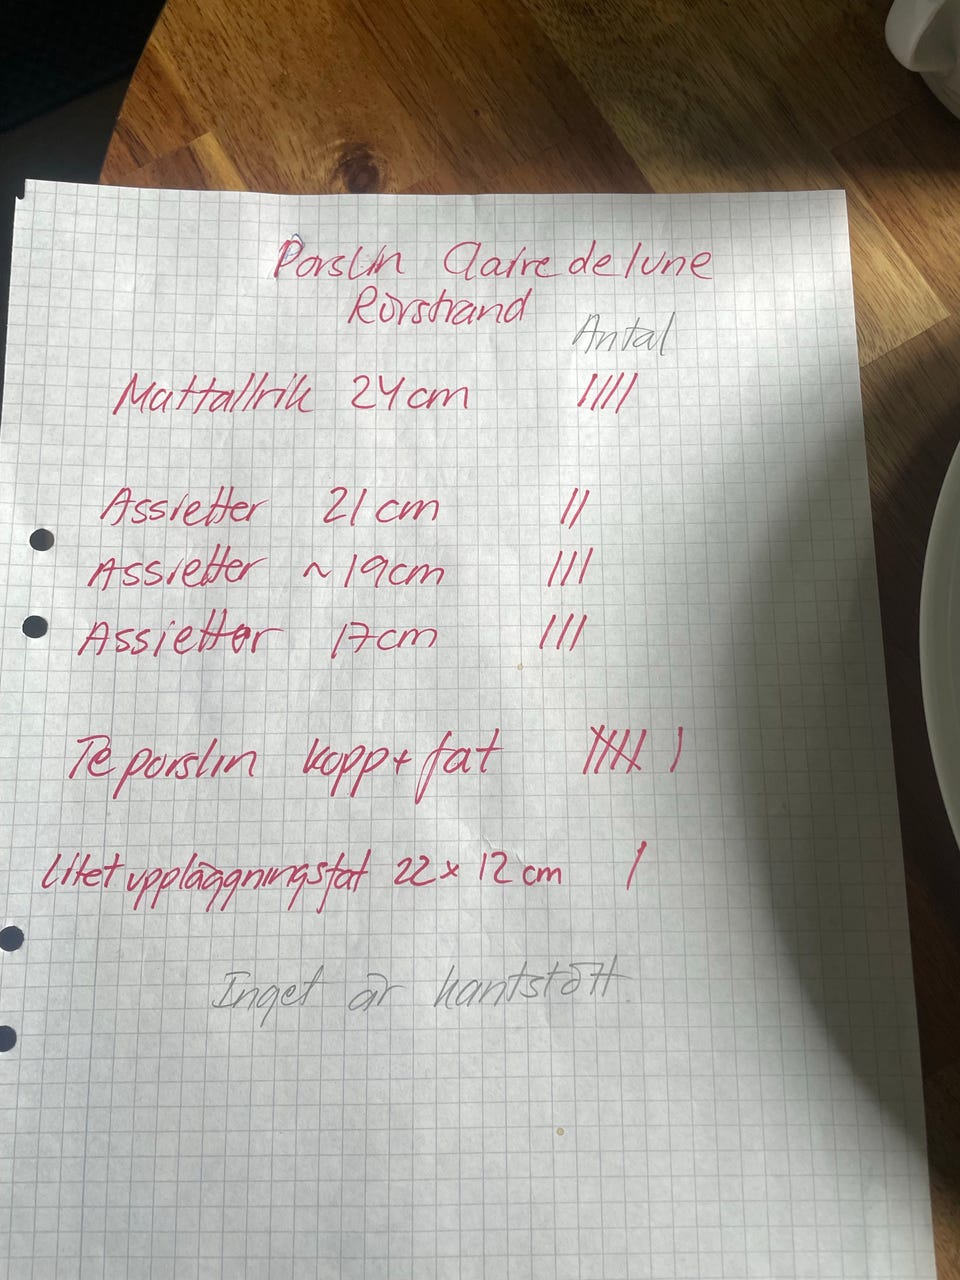 Porslin Claire de lune
Rörstrand
Antal
Mattallrik 24cm ||||
Assietter 21cm ||
Assietter ~19cm |||
Assietter 17cm |||
Teporslin kopp+fat |||| |
Litet uppläggningsfat 22x12cm |
Inget är kantstött.